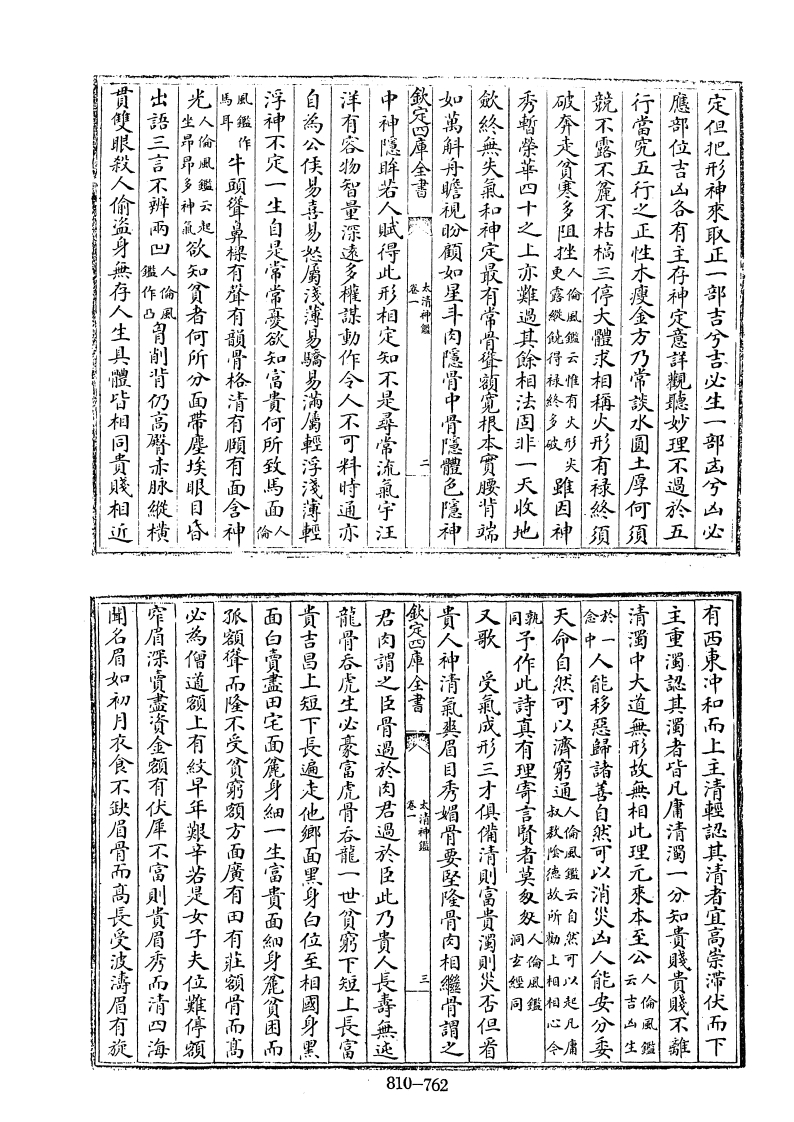 定但把形神來取正一部吉兮吉必生一部凶兮凶必
應部位吉凶各有主存神定意詳觀聽妙理不過於五
行當究五行之正性木瘦金方乃常談水圓土厚何須
競不露不麄不枯槁三停大體求相稱火形有禄終須
破奔走貧寒多阻挫人倫風鑑云惟有火形尖更露縱饒得禄終多破雖因神
秀暫榮華四十之上亦難過其餘相法固非一天收地
斂終無失氣和神定最有常骨聳額寬根本實腰背端
如萬斛舟瞻視盼顧如星斗肉隱骨中骨隱體色隱神
欽定四庫全書 太清神鑑卷一 二
中神隱眸若人賦得此形相定知不是尋常流氣宇汪
洋有容物智量深遠多權謀動作令人不可料時通亦
自為公侯易喜易怒屬淺薄易驕易滿屬輕浮淺薄輕
浮神不定一生自是常常憂欲知富貴何所致馬面人倫
風鑑作馬耳牛頭聳鼻樑有聲有韻骨格清有頤有面含神
光人倫風鑑云起坐昂昂多神氣欲知貧者何所分面帶塵埃眼目昏
出語三言不辨兩凹人倫風鑑作凸胷削背仍高臀赤脉縱横
貫雙眼殺人偷盜身無存人生具體皆相同貴賤相近
有西東沖和而上主清輕認其清者宜高崇滯伏而下
主重濁認其濁者皆凡庸清濁一分知貴賤貴賤不離
清濁中大道無形故無相此理元來本至公人倫風鑑云吉凶生
於一念中人能移惡歸諸善自然可以消災凶人能安分委
天命自然可以濟窮通人倫風鑑云自然可以起凡庸叔敖陰德故所勸上相相心今
孰同予作此詩真有理寄言賢者莫匆匆人倫風鑑洞玄經同
又歌 受氣成形三才俱備清則富貴濁則災否但看
貴人神清氣爽眉目秀媚骨要堅隆骨肉相繼骨謂之
欽定四庫全書 太清神鑑卷一 三
君肉謂之臣骨過於肉君過於臣此乃貴人長壽無迍
龍骨吞虎生必豪富虎骨吞龍一世貧窮下短上長富
貴吉昌上短下長遍走他鄉面黑身白位至相國身黑
面白賣盡田宅面麄身細一生富貴面細身麄貧困而
孤額聳而隆不受貧窮額方面廣有田有莊額骨而高
必為僧道額上有紋早年艱辛若是女子夫位難停額
窄眉深賣盡資金額有伏犀不富則貴眉秀而清四海
聞名眉如初月衣食不缺眉骨而高長受波濤眉有旋
810-762